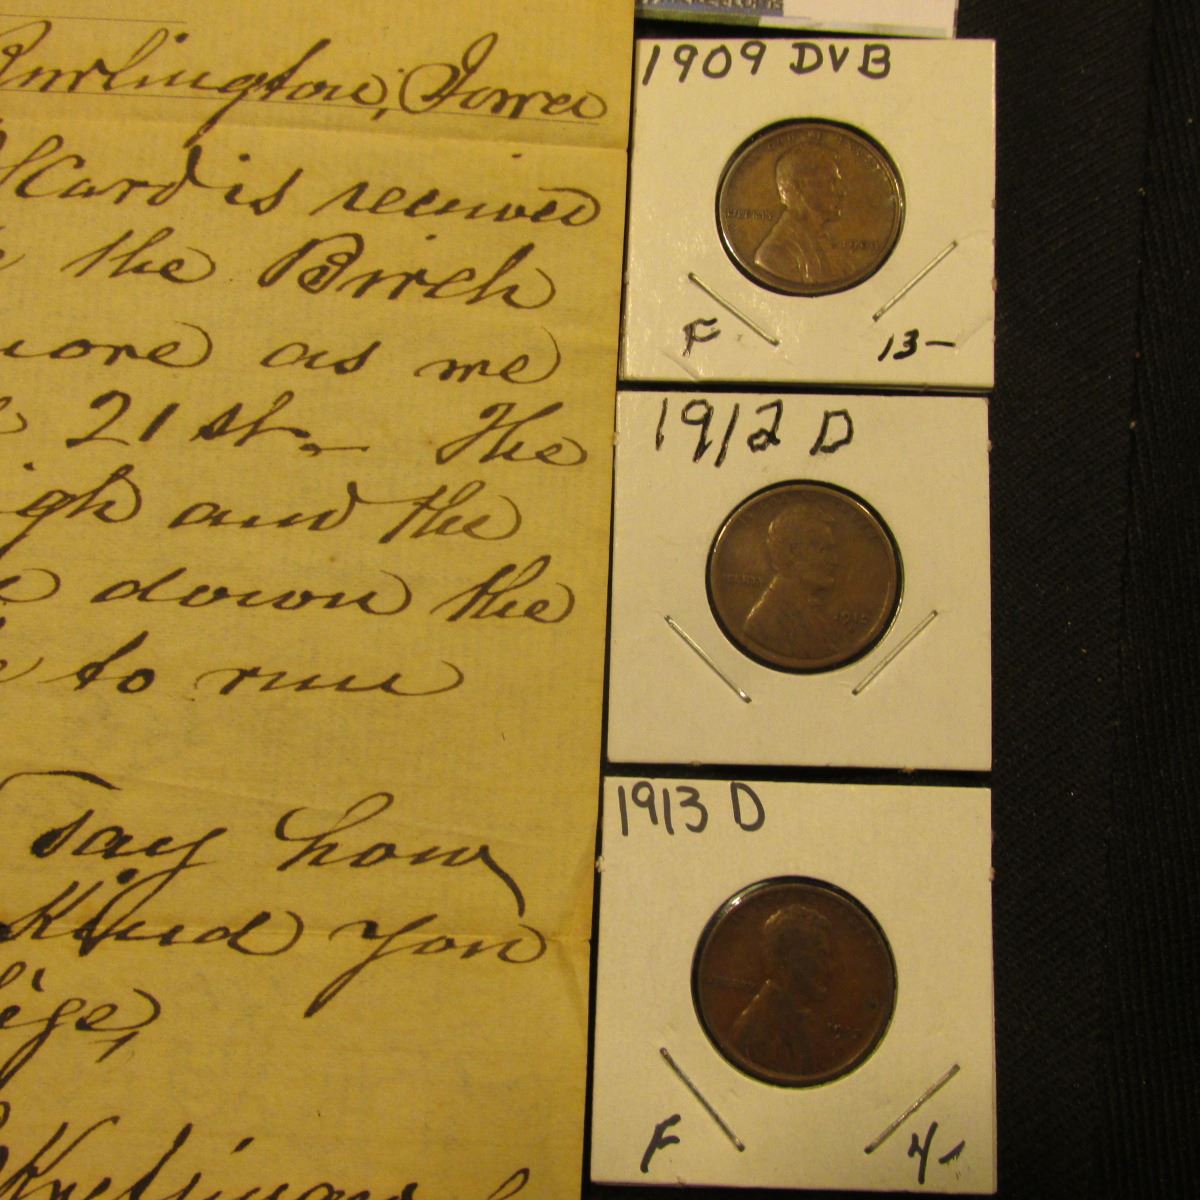 Burlington, Iowa
Card is received
the Birch
more as we
21st. The
high and the
down the
to run
say how
Kind you
1909 DVB
LIBERTY
1909
F
13-
1912 D
LIBERTY
1912
1913 D
1913
F
4-